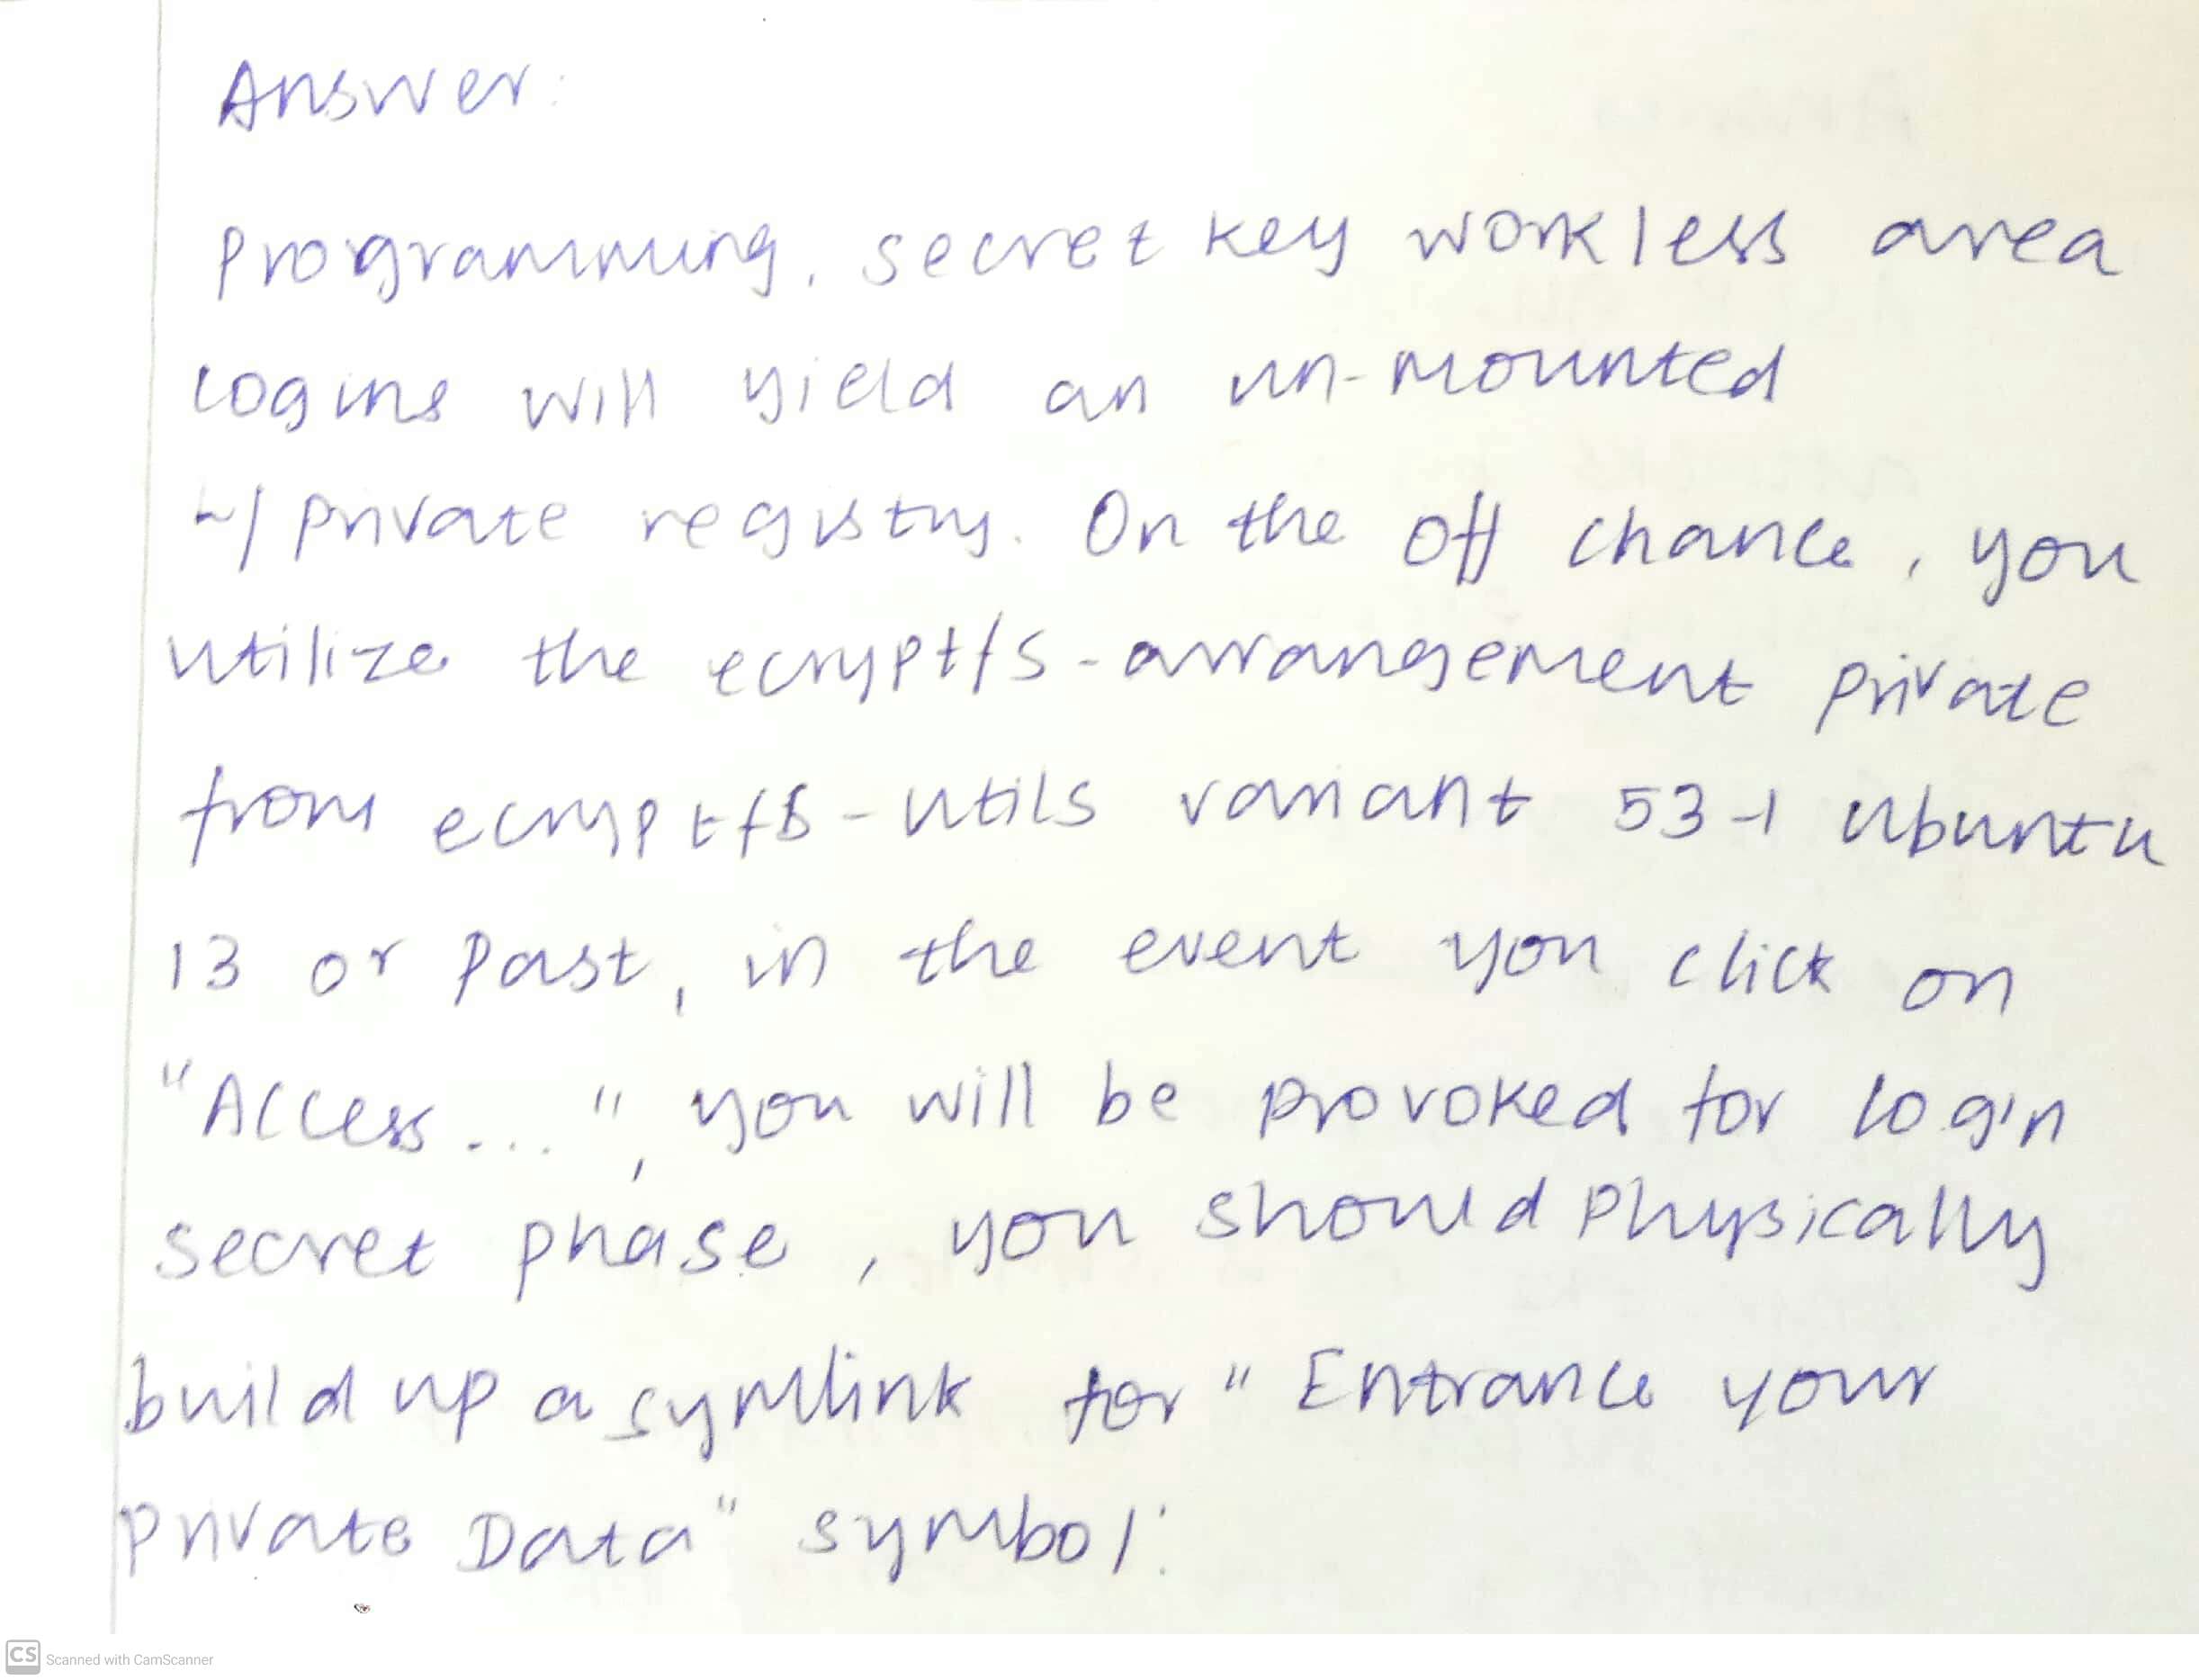 Answer:
Programming, secret key work less area
logins will yield an un-mounted
~/private registry. On the off chance, you
utilize the ecryptfs-arrangement private
from ecryptfs-utils variant 53-1 Ubuntu
13 or Past, in the event you click on
"Access...", you will be provoked for login
secret phase, you should Physically
build up a symlink for "Entrance your
Private Data" symbol:
CS Scanned with CamScanner